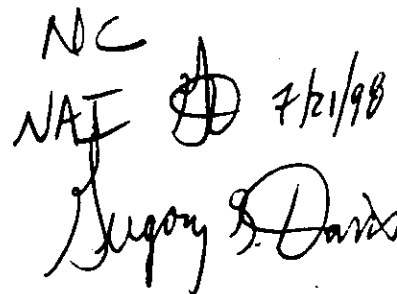 NC
NAI 7/21/98
Gregory B. Davis